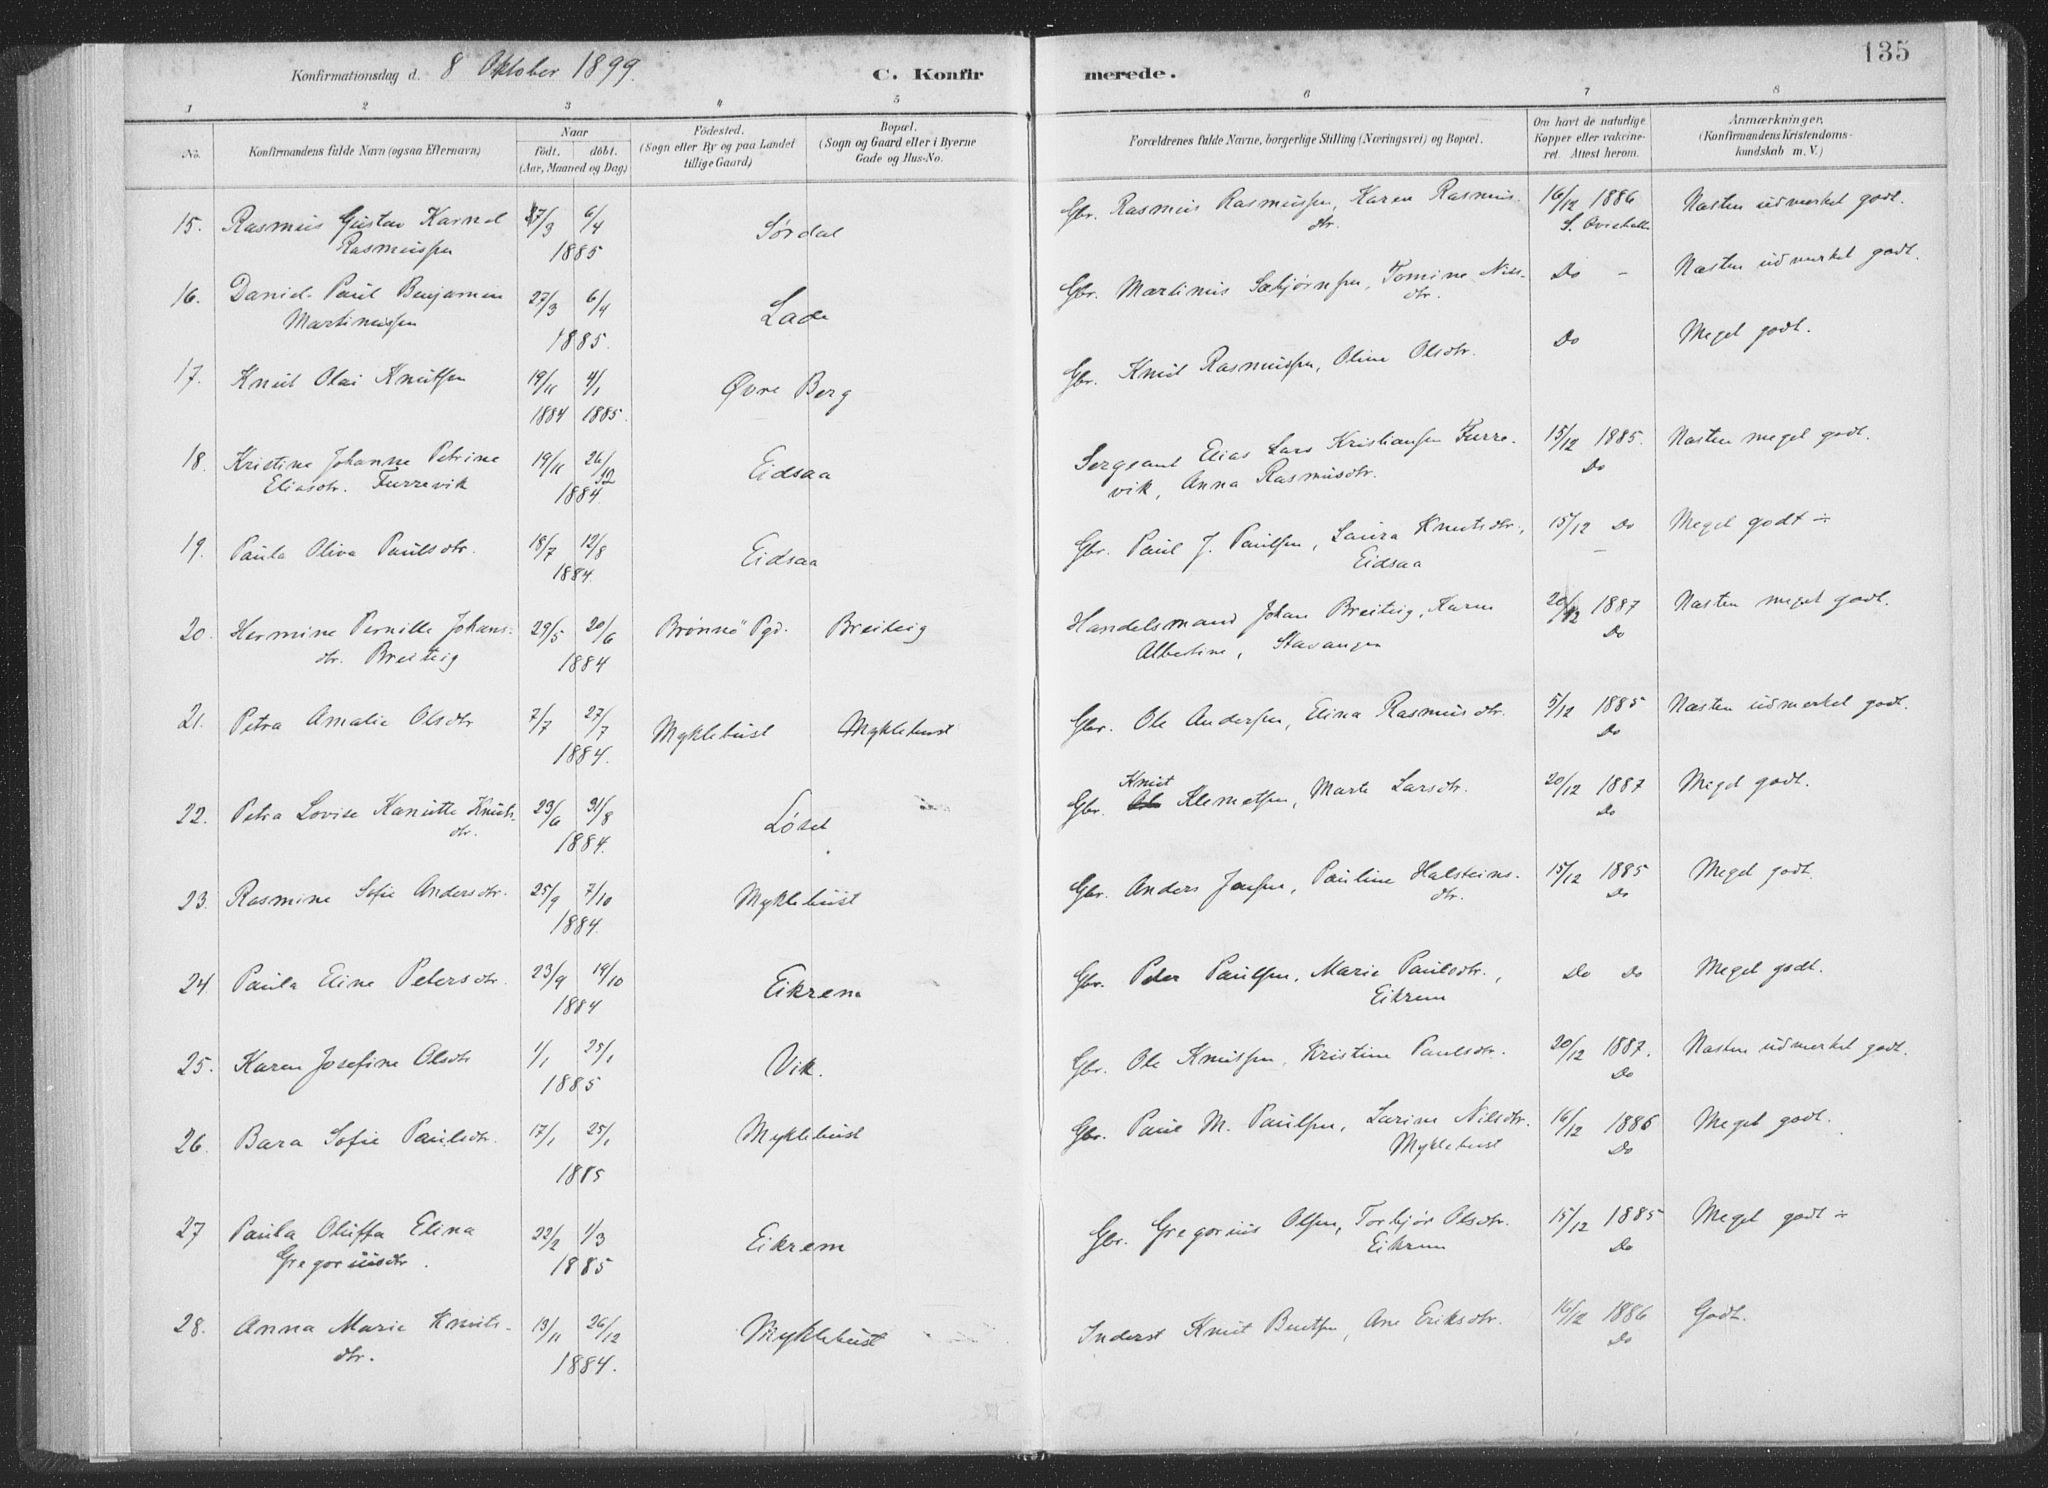 135
Konfirmationsdag d. 8 Oktober 1899. C. Konfirmerede.
1 2 3 4 5 6 7 8
No. Konfirmandens fulde Navn (ogsaa Efternavn) Naar födt. döbt. (Aar, Maaned og Dag) Födested. (Sogn eller By og paa Landet tillige Gaard) Bopæl. (Sogn og Gaard eller i Byerne Gade og Hus-No. Forældrenes fulde Navne, borgerlige Stilling (Næringsvei) og Bopæl. Om havt de naturlige Kopper eller vakcineret. Attest herom. Anmærkninger. (Konfirmandens Kristendomskundskab m. V.)
15. Rasmus Gustav Karnel 27/3 6/4 Sørdal Gbr. Rasmus Rasmussen, Karen Rasmus- 16/12 1886 Næsten udmerket godt.
Rasmussen 1885 dtr.
16. Daniel Paul Benjamin 27/3 6/4 Lade Gbr. Martinus Sæbjørnsen, Tomine Nils- Do - Næsten udmerket godt.
Martinussen 1885. dtr.
17. Knut Olai Knutsen 19/11 4/1 Øvre Berg Gbr. Knut Rasmussen, Oline Olsdtr. Do Meget godt.
1884 1885.
18. Kristine Johanne Petrine 19/11 26/12 Eidsaa Sergeant Elias Lars Kristiansen Furre- 15/12 1885. Næsten meget godt.
Eliasdtr. Furrevik 1884. vik, Anna Rasmusdtr. Do
19. Paula Oliva Paulsdtr. 18/7 12/8 Eidsaa Gbr. Paul J. Paulsen, Laura Knutsdtr., 15/12 Do Meget godt ÷
1884. Eidsaa
20. Hermine Pernille Johans- 29/5 20/6 Brønnø Pgd. Breiteig Handelsmand Johan Breiteig, Karen 20/12 1887 Næsten meget godt.
dtr. Breiteig 1884 Albertine, Stavangen Do
21. Petra Amalie Olsdtr 7/7 27/7 Myklebust Myklebust Gbr. Ole Andersen, Elina Rasmusdtr. 5/12 1885 Næsten udmerket godt.
1884. Do
22. Petra Lovise Kanutte Knuts- 23/6 31/8 Løset Gbr. Knut Klemetsen, Marte Larsdtr. 20/12 1887 Meget godt.
dtr. 1884. Do
23. Rasmine Sofie Andersdtr. 25/9 7/10 Myklebust Gbr. Anders Jensen, Pauline Halsteins- 15/12 1885 Meget godt.
1884. dtr. Do
24. Paula Eline Petersdtr. 23/9 19/10 Eikrem Gbr. Peter Paulsen, Marie Paulsdtr., Do Do Meget godt.
1884 Eikrem
25. Karen Josefine Olsdtr 1/1 25/1 Vik. Gbr. Ole Knutsen, Kristine Paulsdtr. 20/12 1887. Næsten udmerket godt.
1885 Do
26. Bara Sofie Paulsdtr. 17/1 25/1 Myklebust Gbr. Paul M. Paulsen, Larine Nilsdtr. 16/12 1886 Meget godt.
1885 Myklebust Do
27 Paula Oluffa Elina 22/2 1/3 Eikrem Gbr. Gregorius Olsen, Torbjør Olsdtr. 15/12 1885 Meget godt ÷
Gregoriusdtr. 1885 Eikrem Do
28. Anna Marie Knuts- 13/11 26/12 Myklebust Inderst Knut Bentsen, Ane Eriksdtr. 16/12 1886 Godt.
dtr. 1884. Do